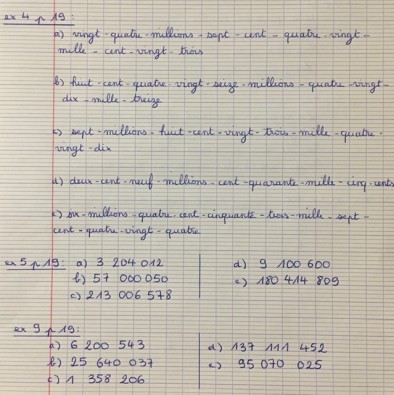 ex 4 p 19 :
a) vingt-quatre-millions-sept-cent-quatre-vingt-
mille-cent-vingt-trois
b) huit-cent-quatre-vingt-seize-millions-quatre-vingt-
dix-mille-treize
c) sept-millions-huit-cent-vingt-trois-mille-quatre-
vingt-dix
d) deux-cent-neuf-millions-cent-quarante-mille-cinq-cents
e) six-millions-quatre-cent-cinquante-trois-mille-sept-
cent-quatre-vingt-quatre
ex 5 p 19 : a) 3 204 012
b) 57 000 050
c) 213 006 578
d) 9 100 600
e) 180 414 809
ex 9 p 19 :
a) 6 200 543
b) 25 640 037
c) 1 358 206
d) 137 111 452
e) 95 070 025